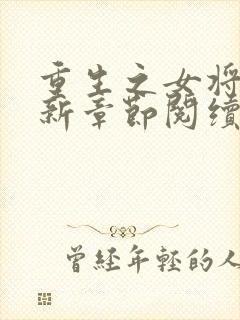 重生之女将
新章節閱續
曾經年輕的人